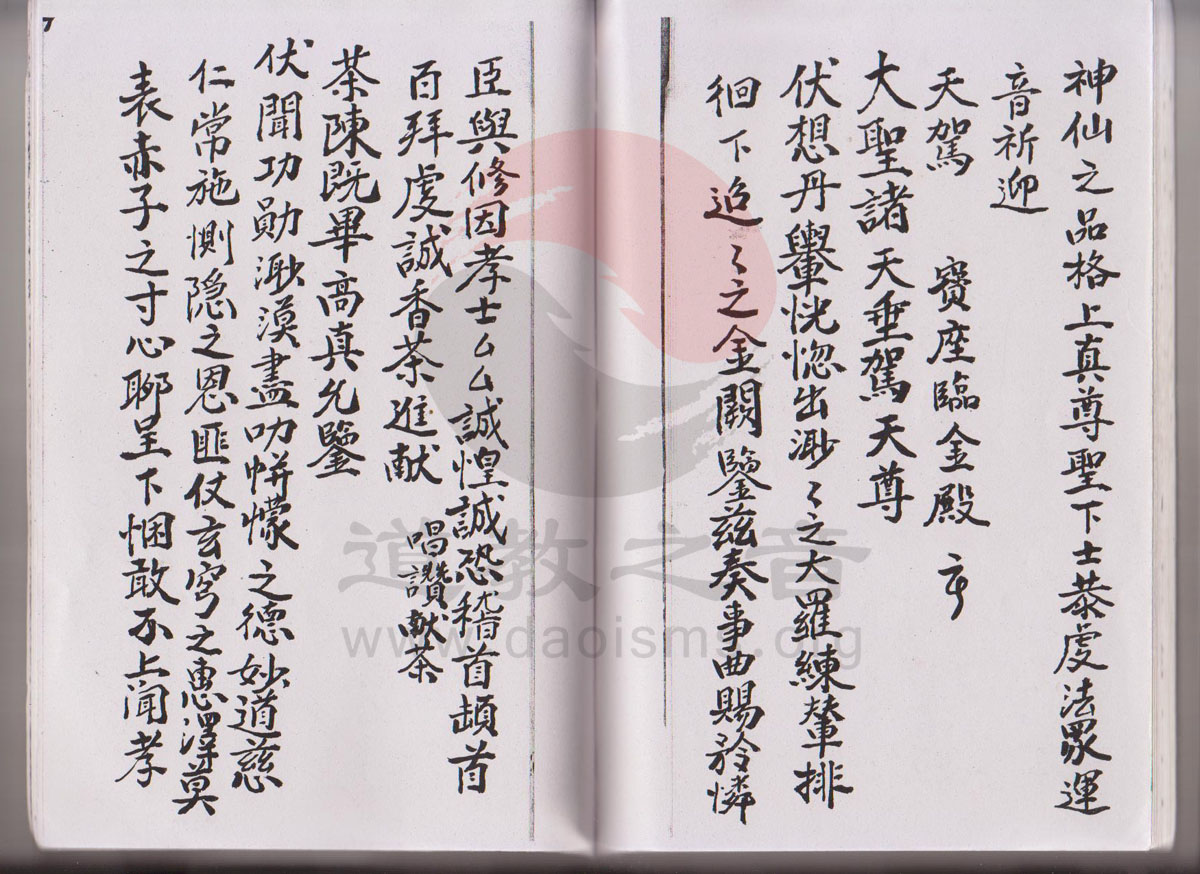 神仙之品格上真尊聖下士恭虔法眾運
音祈迎
天駕 寶座臨金殿
大聖諸天垂駕天尊
伏想丹轝恍惚出渺〻之大羅練輦排
徊下迢〻之金闕鑒茲奏事曲賜矜憐
臣與修因孝士厶厶誠惶誠恐稽首頓首
百拜虔誠香茶進献 唱讚献茶
茶陳既畢高真允鑒
伏聞功勛渺漠盡叨帡幪之德妙道慈
仁常施惻隐之恩匪仗玄穹之惠澤莫
表赤子之寸心聊呈下悃敢不上闻孝
7
道教之音
www.daoisms.org